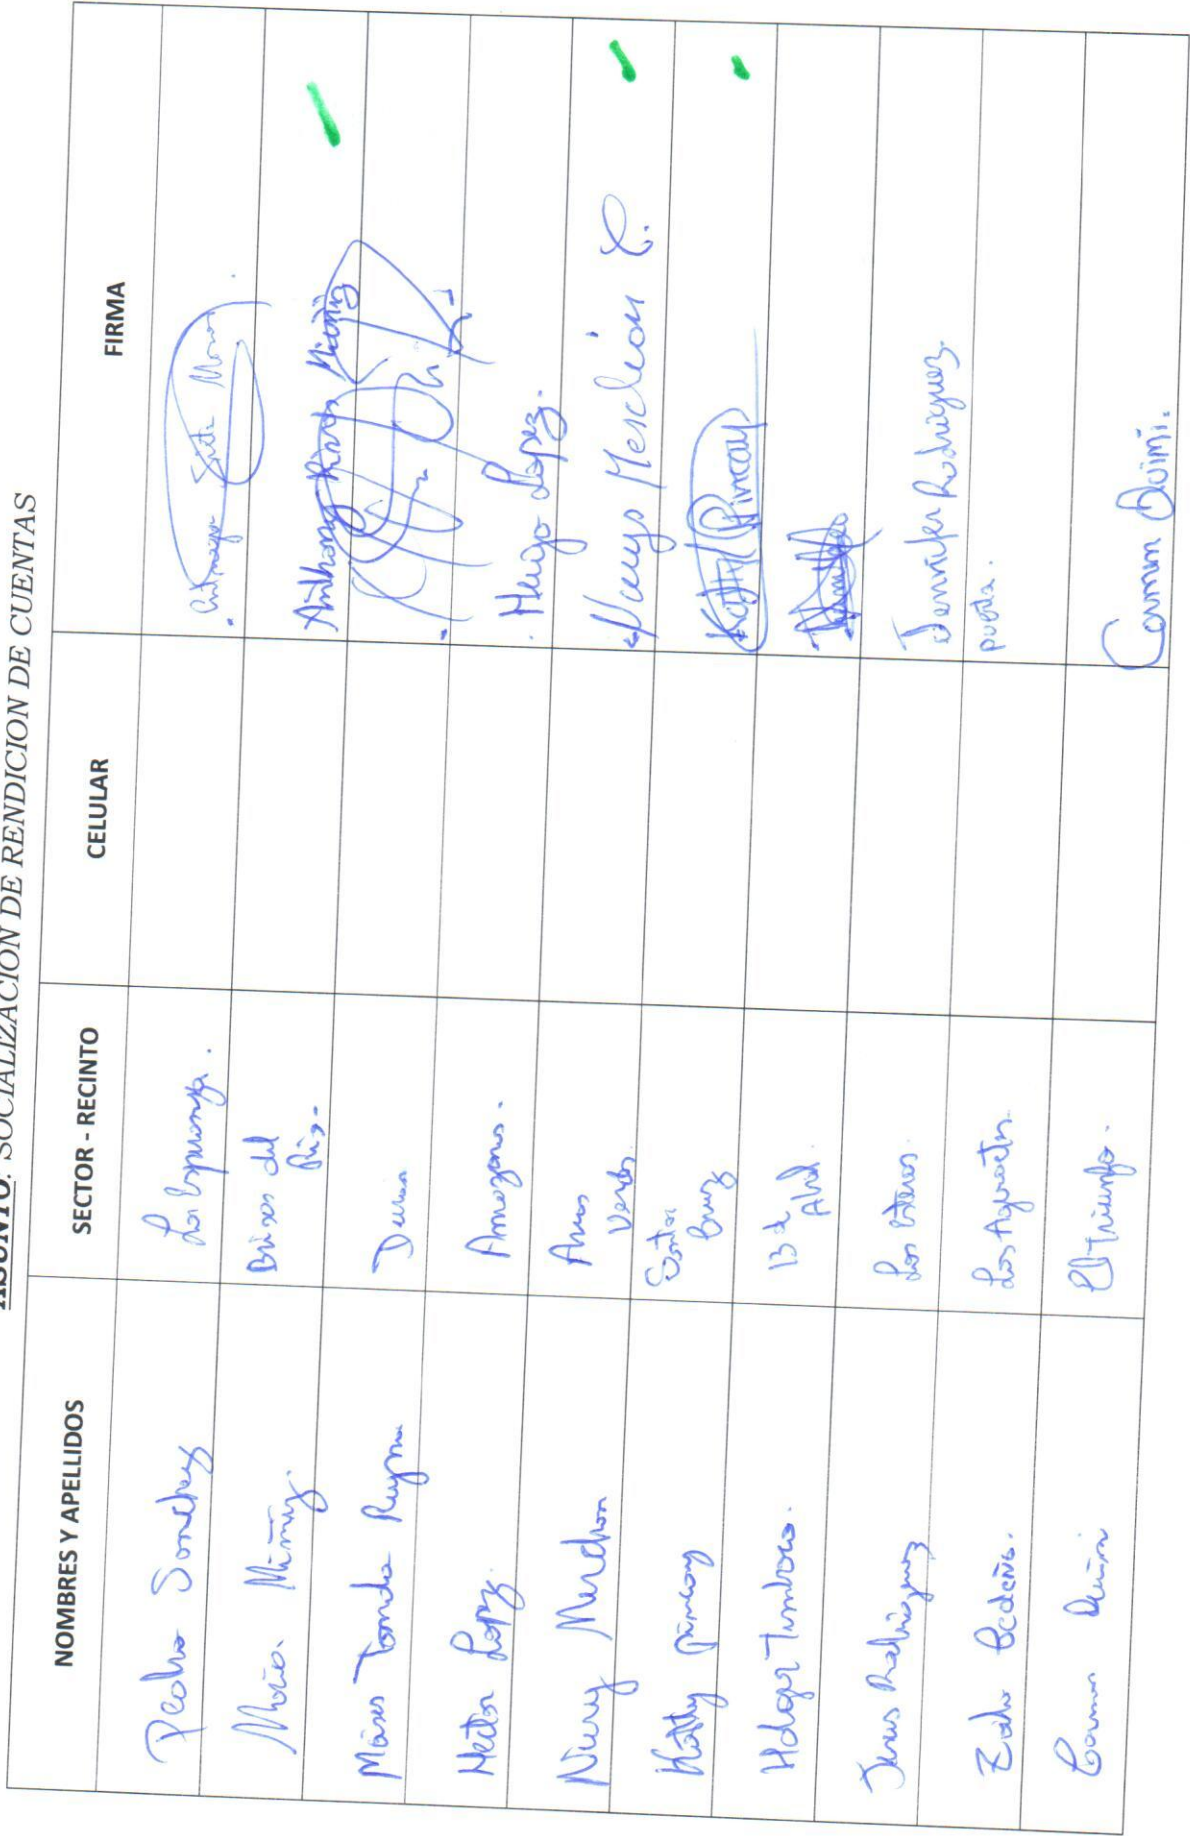 ASUNTO: SOCIALIZACION DE RENDICION DE CUENTAS
NOMBRES Y APELLIDOS SECTOR - RECINTO CELULAR FIRMA
Pedro Sanchez La Esperanza.
María Muñiz. Brisas del Rio. Anthony Rivas Muñiz
Moises Tomala Reyna Duran
Hector Lopez. Amazonas. Hugo Lopez.
Nury Merchan Aires Verdes Nuys Merchán C.
Kathy Pincay Santa Cruz Kathy Pincay
Holger Tumbaco. 13 de Abril.
Jesus Rodriguez Los Esteros. Jennifer Rodriguez
Cedeño. Los puesta.
Carmen Quimi El Triunfo. Carmen Quimi.